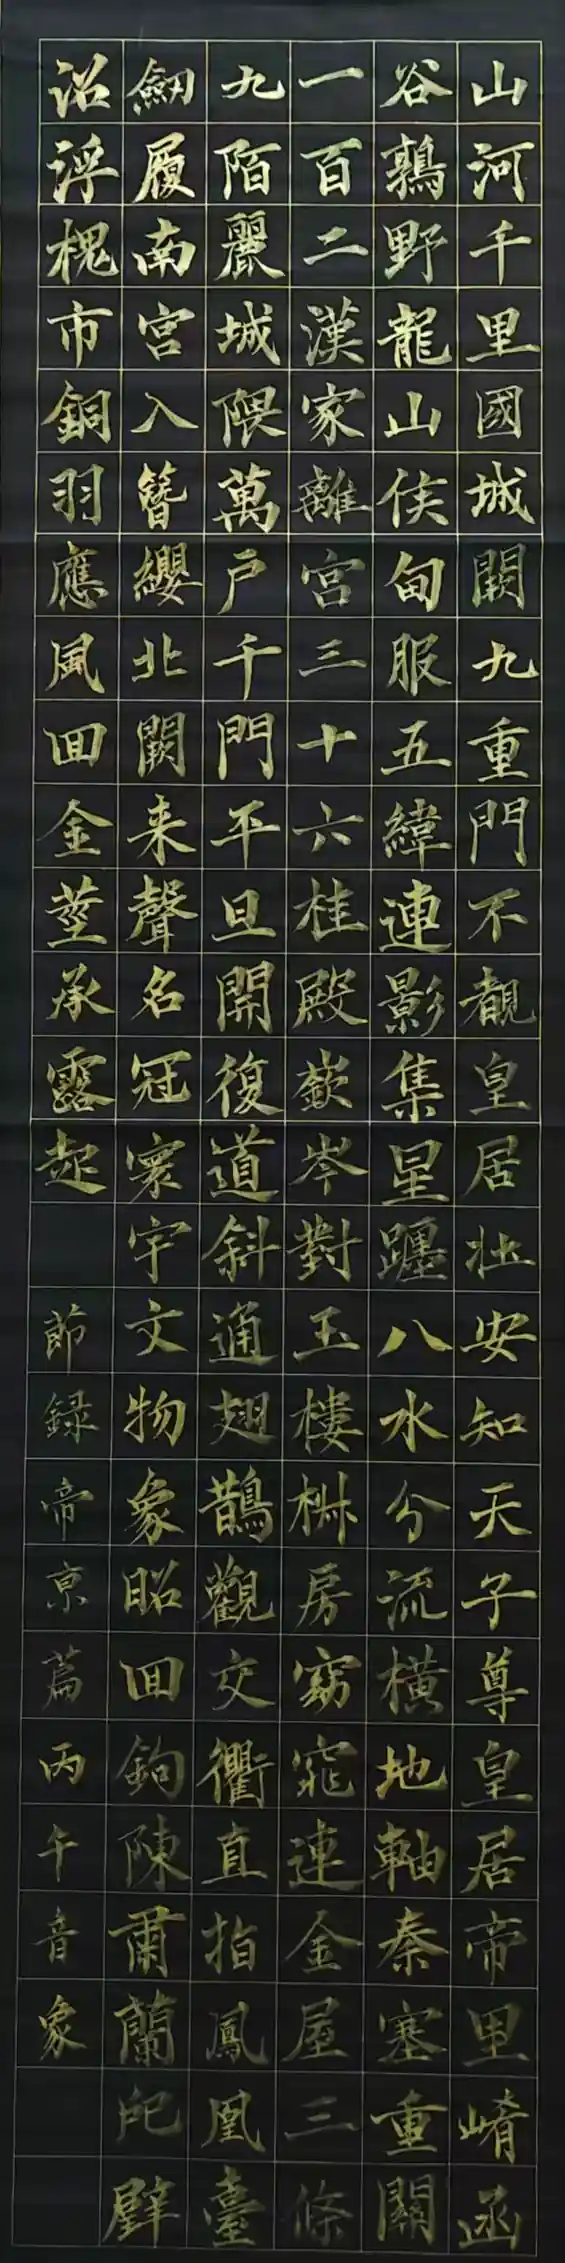 山河千里國城闕九重門不覩皇居壯安知天子尊皇居帝里崤函
谷鶉野龍山侯甸服五緯連影集星躔八水分流橫地軸秦塞重關
一百二漢家離宮三十六桂殿嶔岑對玉樓椒房窈窕連金屋三條
九陌麗城隈萬戶千門平旦開復道斜通翅鵲觀交衢直指鳳凰臺
劒履南宮入簪纓北闕来聲名冠寰宇文物象昭囬鉤陳肅蘭戺璧
沼浮槐市銅羽應風囬金莖承露起
節録帝京篇丙午音象